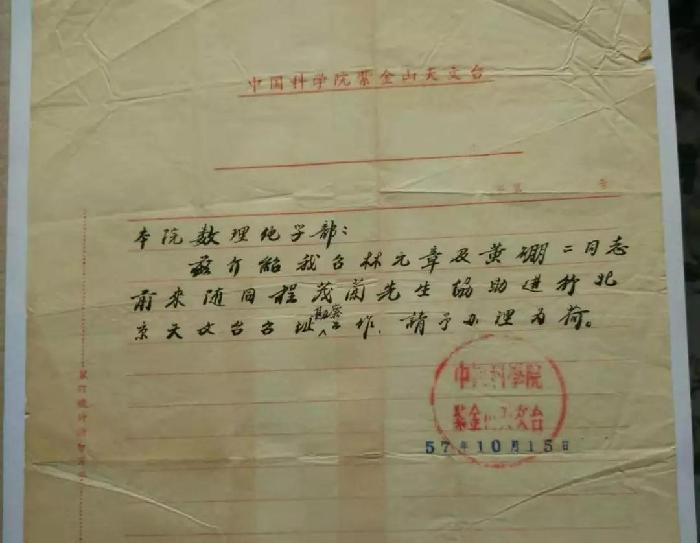 中国科学院紫金山天文台
字第 号
本院数理化学部：
兹介绍我台林元章及黄硼二同志
前来随同程茂兰先生协助进行北
京天文台台址勘察工作，請予办理为荷。
中国科学院
紫金山天文台
57年10月15日